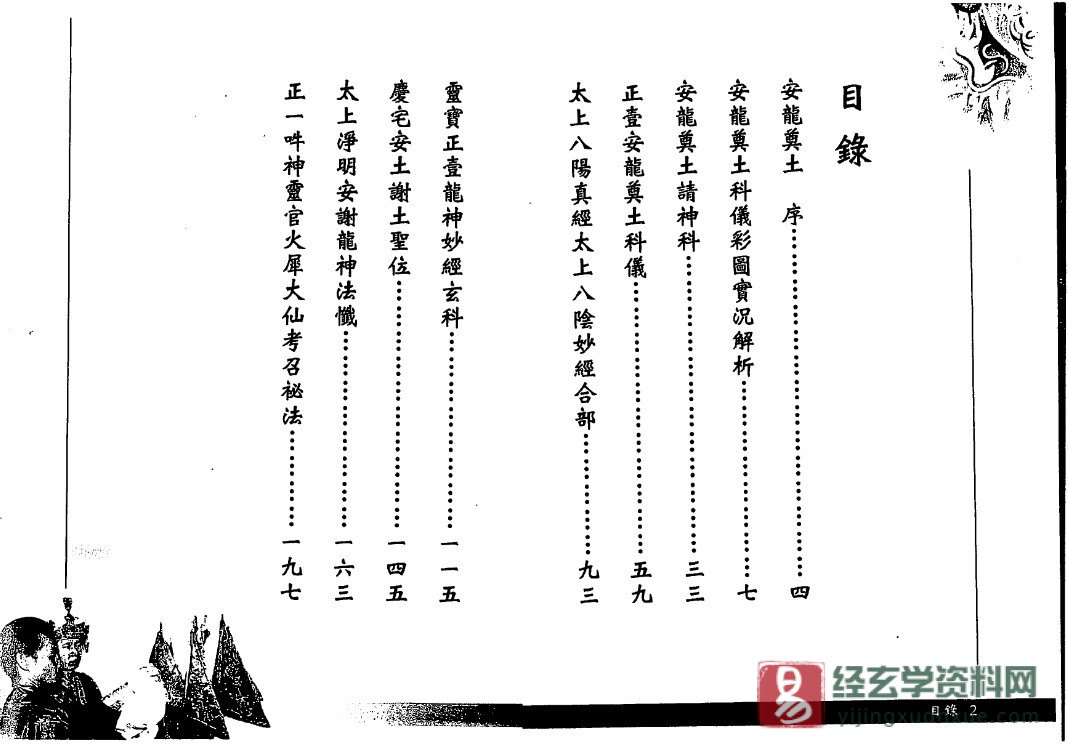 目錄
安龍奠土 序⋯⋯⋯⋯⋯⋯⋯⋯四
安龍奠土科儀彩圖實況解析⋯⋯⋯⋯七
安龍奠土請神科⋯⋯⋯⋯⋯⋯三三
正壹安龍奠土科儀⋯⋯⋯⋯⋯⋯五九
太上八陽真經太上八陰妙經合部⋯⋯⋯九三
靈寶正壹龍神妙經玄科⋯⋯⋯⋯一一五
慶宅安土謝土聖位⋯⋯⋯⋯⋯一四五
太上淨明安謝龍神法懺⋯⋯⋯⋯一六三
正一吽神靈官火犀大仙考召祕法⋯⋯⋯一九七
经玄学资料网
目錄 2